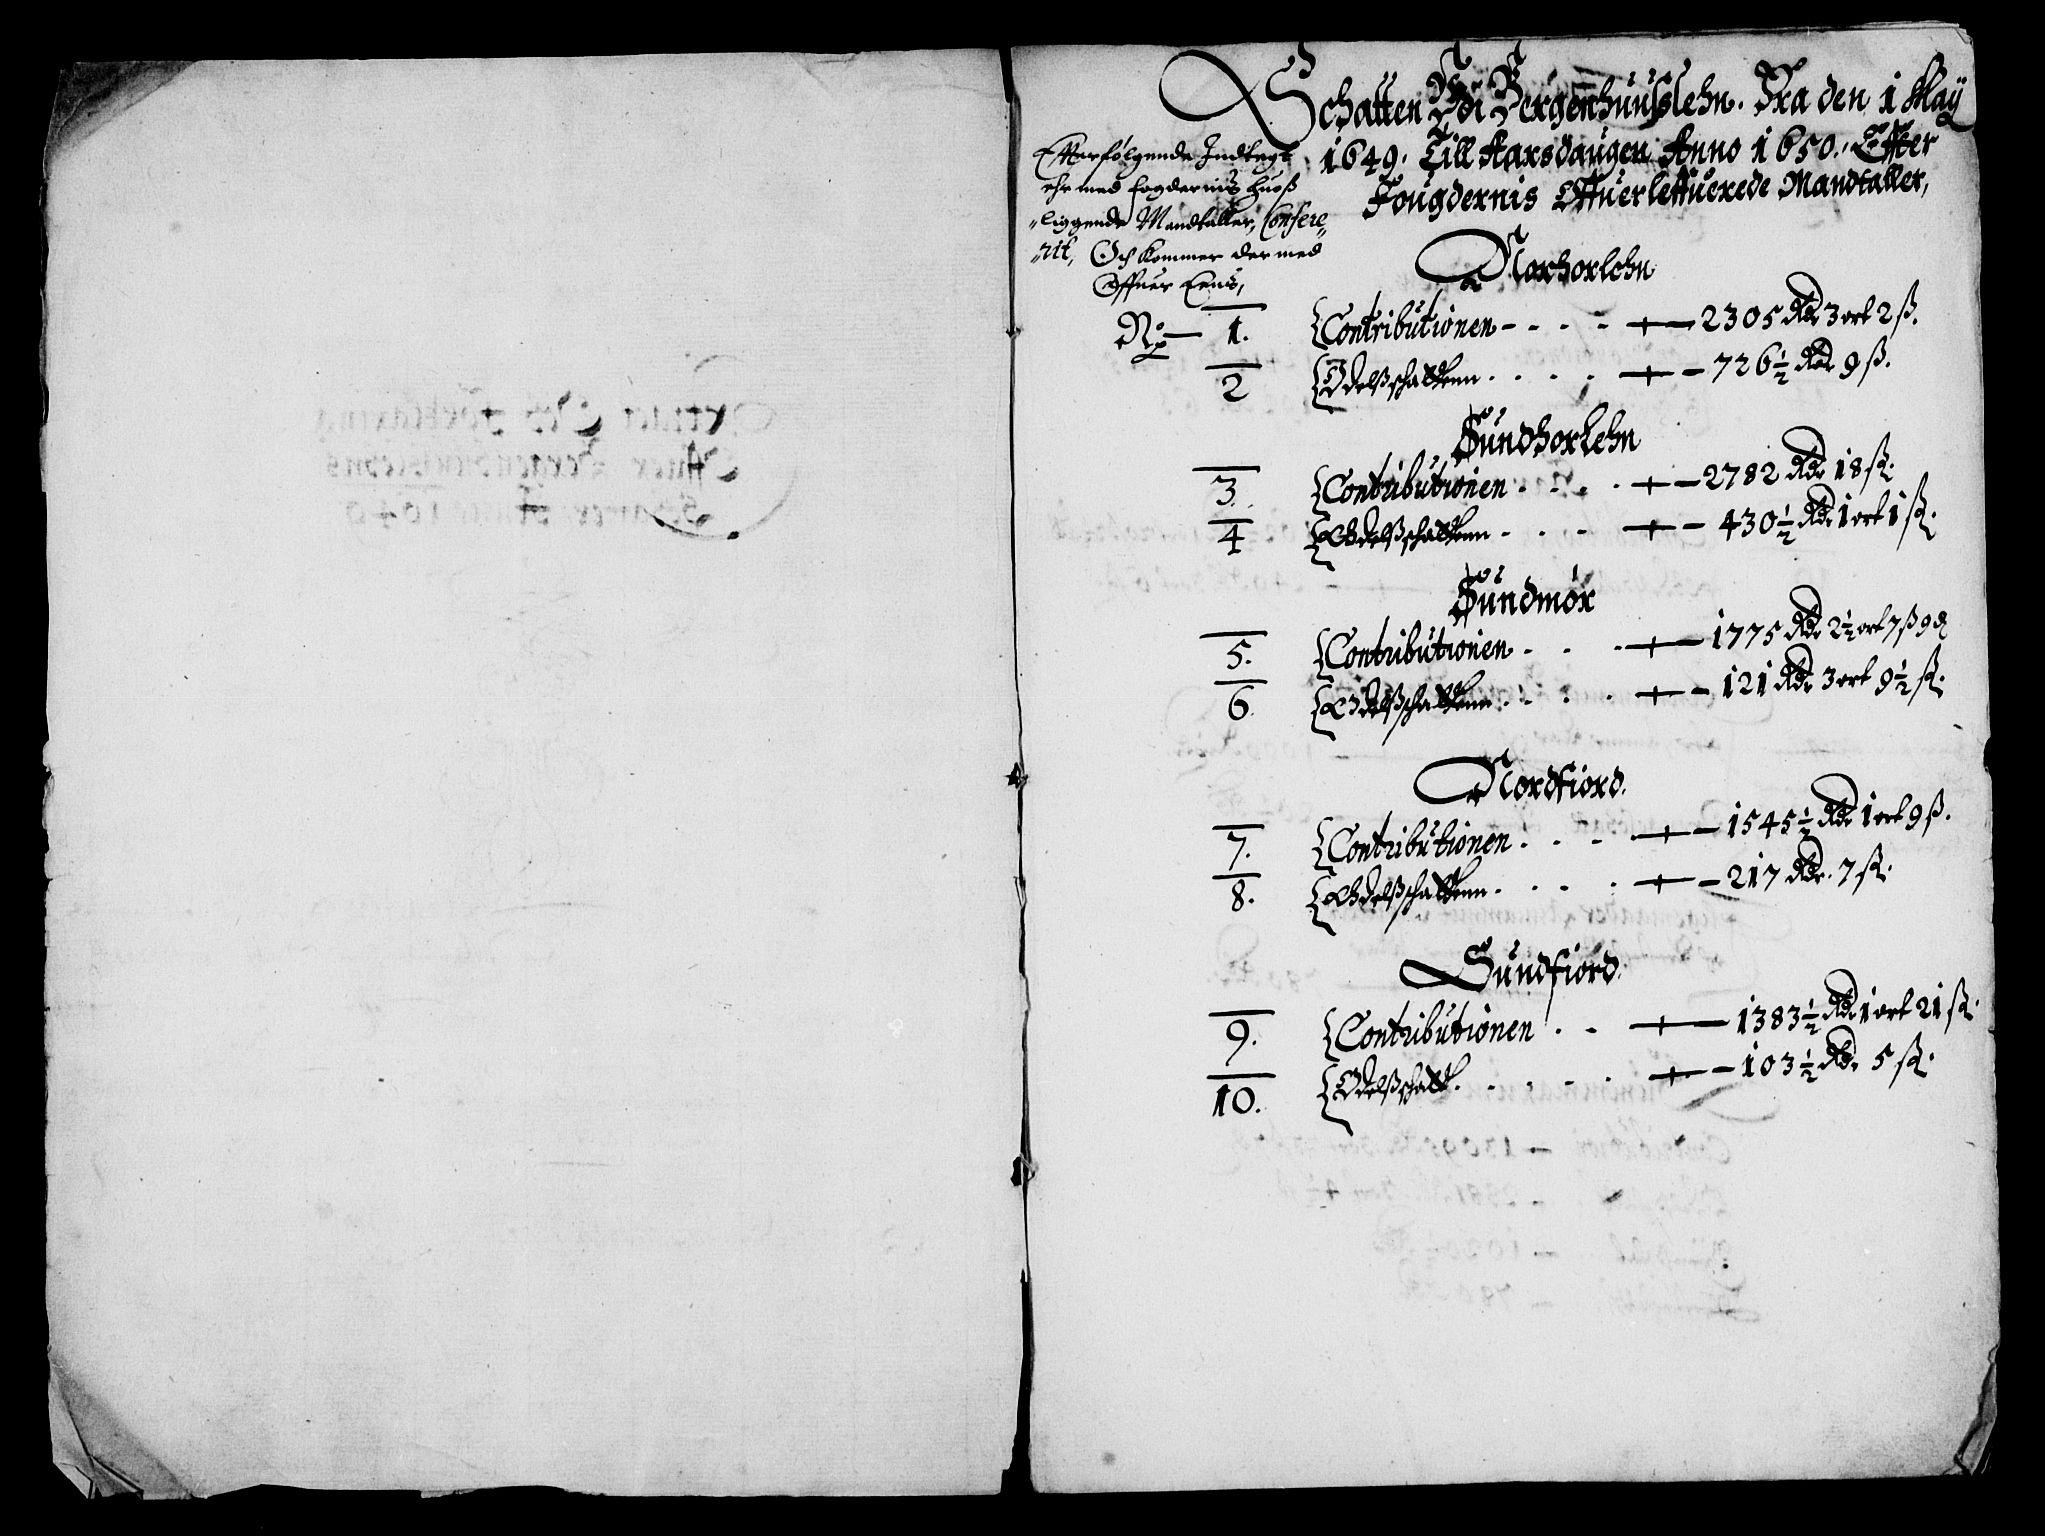 Schatten Udi Bergenhuuslehn. Fra den 1 May
1649. Till Aarsdaugen Anno 1650. Effter
Fougdernis Offuerleffuerede Mandtaller,
Efterfølgende Indtegt
ehr med fogdernis huoß
"liggende Mandtaller, Confere"
"rit, Och kommer der med
Offuer Eens,
Norhorlehn
No 1. Contributionen - - - - 2305 Rdr 3 ort 2 ß.
2 Odelßschattenn . . . . - 726½ Rdr 9 ß.
Sundhorlehn
3. Contributionen . . . . - 2782 Rdr 18 ß.
4 Odelßschattenn . . . - 430½ Rdr 1 ort 1 ß.
Sundmør
5. Contributionen . . . - 1775 Rdr 2½ ort 7 ß 9 ₰
6 Odelßschattenn . . . . - 121 Rdr 3 ort 9½ ß.
Nordfiord.
7. Contributionen . . . - 1545½ Rdr 1 ort 9 ß.
8. Odelßschattenn . . . . - 217 Rdr. 7 ß.
Sundfiord.
9. Contributionen . . - 1383½ Rdr 1 ort 21 ß.
10. Odelßschatt . . . . . - 103½ Rdr 5 ß.